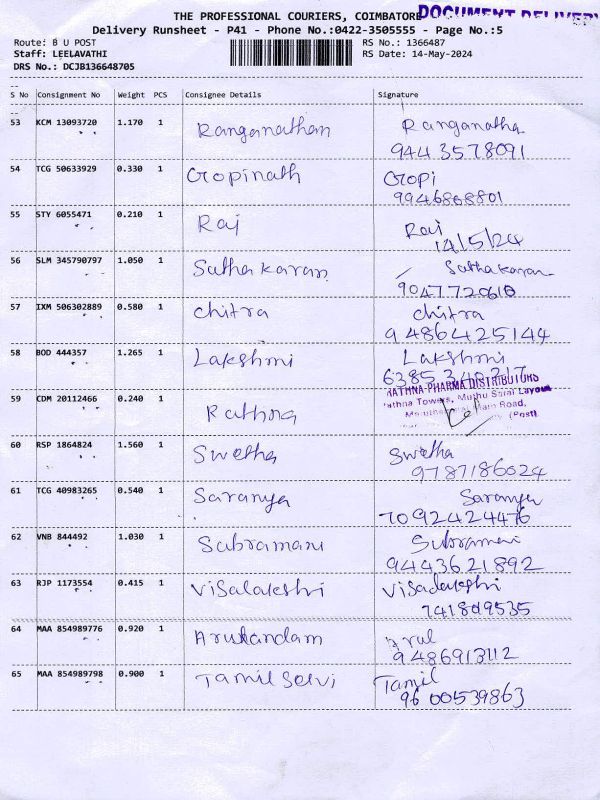 THE PROFESSIONAL COURIERS, COIMBATORE
DOCUMENT DELIVERY
Delivery Runsheet - P41 - Phone No.:0422-3505555 - Page No.:5
Route: B U POST RS No.: 1366487
Staff: LEELAVATHI RS Date: 14-May-2024
DRS No.: DCJB136648705
S No Consignment No Weight PCS Consignee Details Signature
53 KCM 13093720 1.170 1 Ranganathan Ranganatha
9443578091
54 TCG 50633929 0.330 1 Gopinath Gopi
9946868801
55 STY 6055471 0.210 1 Raj Raj
14/5/24
56 SLM 345790797 1.050 1 Sathakaran Sathakaran
9047720610
57 IXM 506302889 0.580 1 Chitra Chitra
9486425144
58 BOD 444357 1.265 1 Lakshmi Lakshmi
6385340217
59 CDM 20112466 0.240 1 Rathna RATHNA PHARMA DISTRIBUTORS
Rathna Towers, Muthu Layout
Road,
(Post)
60 RSP 1864824 1.560 1 Swetha Swetha
9787186024
61 TCG 40983265 0.540 1 Saranya Saranya
7092424476
62 VNB 844492 1.030 1 Subramani Subramani
9443621892
63 RJP 1173554 0.415 1 Visalakshi Visalakshi
741809535
64 MAA 854989776 0.920 1 Arulandam Arul
9486913112
65 MAA 854989798 0.900 1 Tamil Selvi Tamil
9600539863